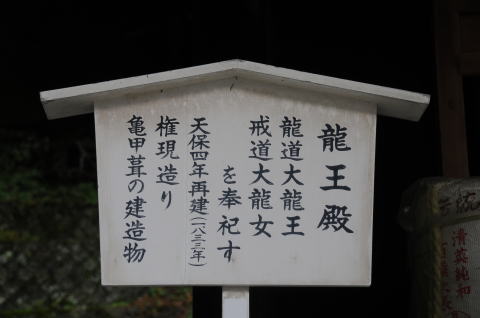 龍王殿
龍道大龍王
戒道大龍女
を奉祀す
天保四年再建(一八三三年)
権現造り
亀甲葺の建造物
清英純和